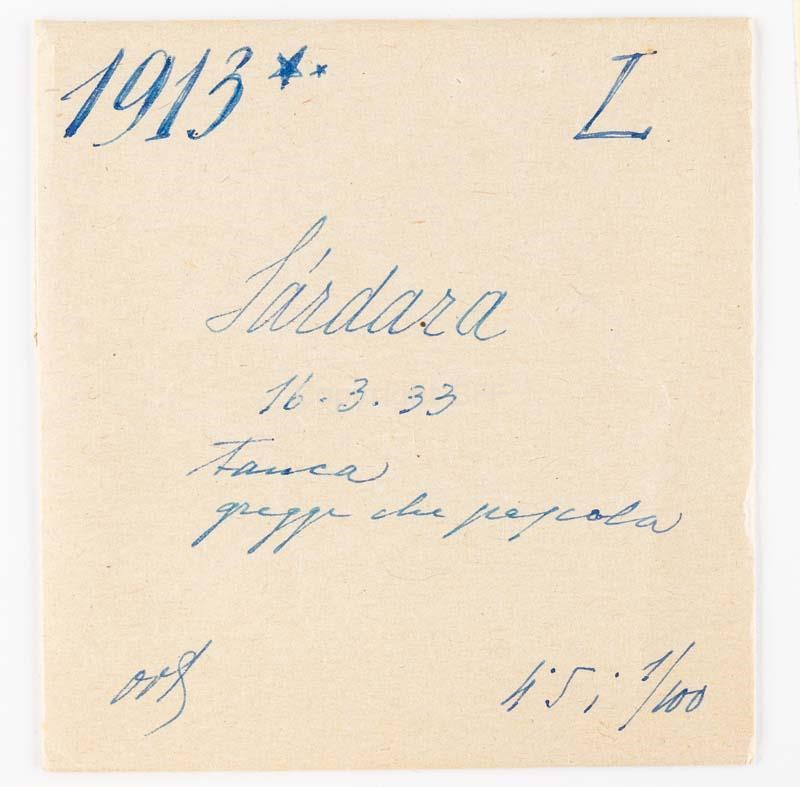 1913 ** L
Sárdara
16.3.33
tanca
gregge che pascola
4.5; 1/100